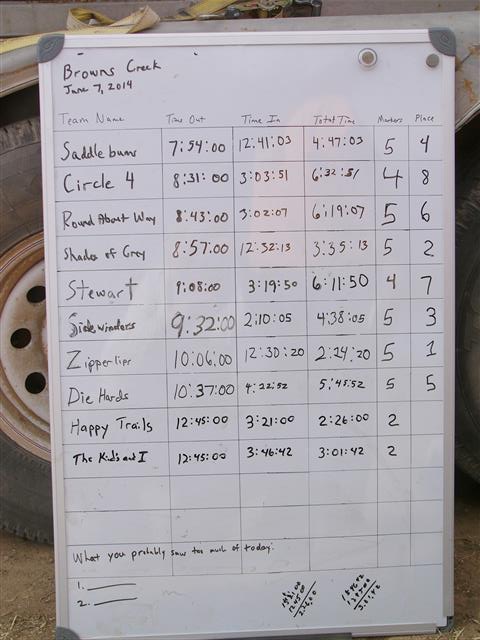 Browns Creek
June 7, 2014
Team Name Time Out Time In Total Time Markers Place
Saddle bums 7:54:00 12:41:03 4:47:03 5 4
Circle 4 8:31:00 3:03:51 6:32:51 4 8
Round About Way 8:43:00 3:02:07 6:19:07 5 6
Shades of Grey 8:57:00 12:32:13 3:35:13 5 2
Stewart 9:08:00 3:19:50 6:11:50 4 7
Sidewinders 9:32:00 2:10:05 4:38:05 5 3
Zipperlips 10:06:00 12:30:20 2:24:20 5 1
Die Hards 10:37:00 4:22:52 5:45:52 5 5
Happy Trails 12:45:00 3:21:00 2:26:00 2
The Kids and I 12:45:00 3:46:42 3:01:42 2
What you probably saw too much of today:
1.
2.